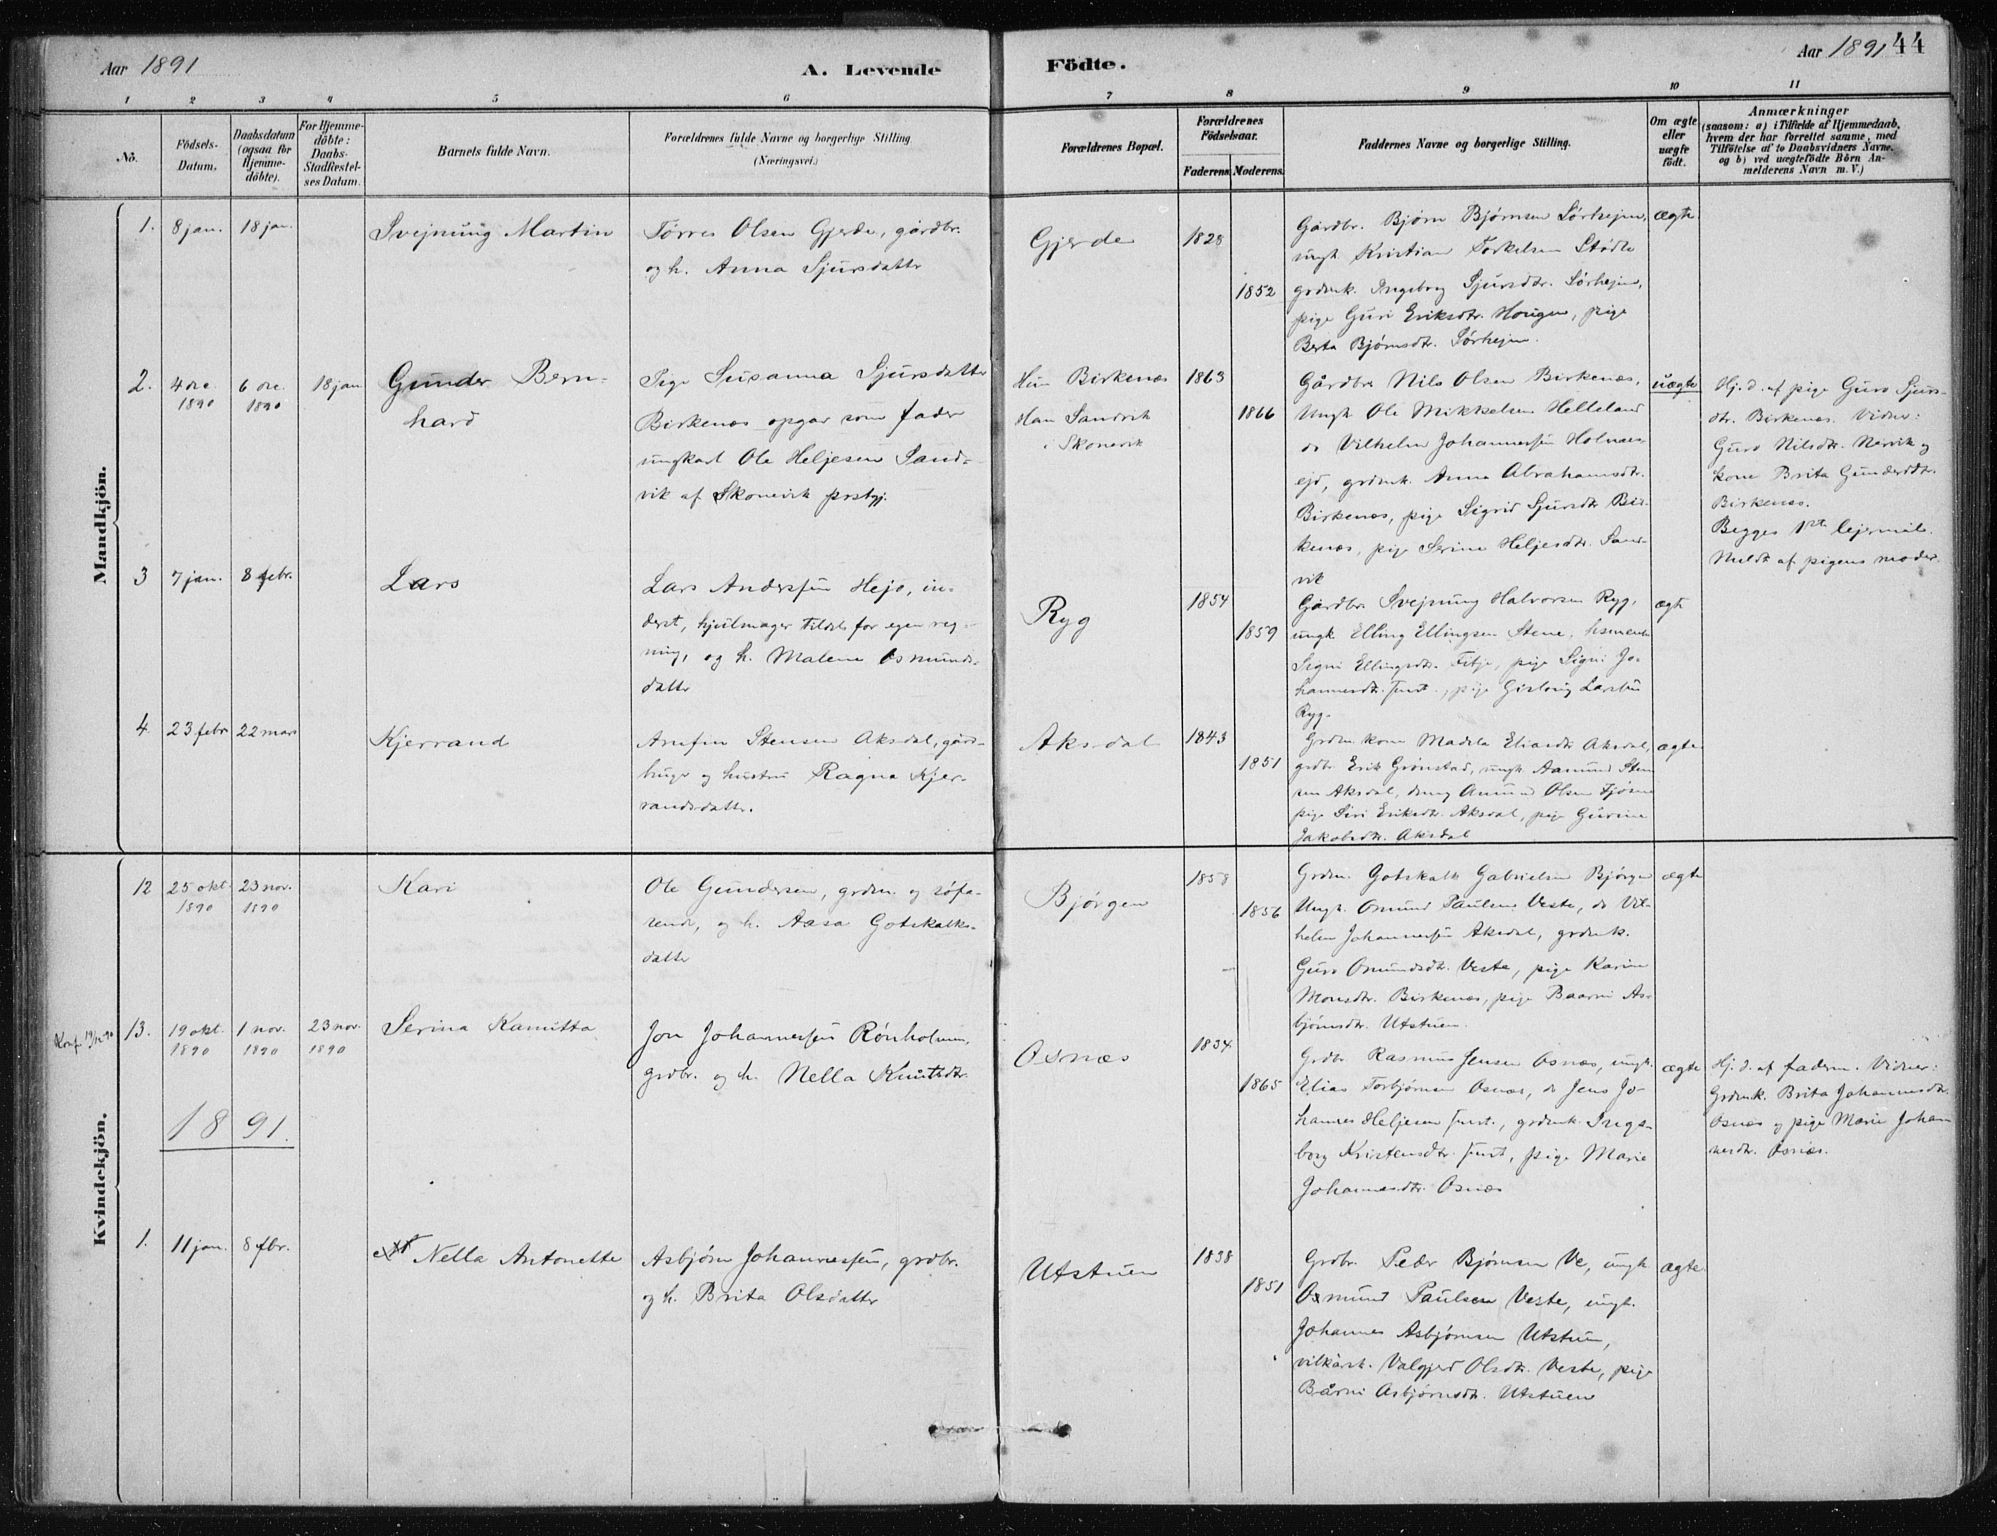 Aar 1891
A. Levende
Födte.
Aar 1891
44
1 2 3 4 5 6 7 8 9 10 11
No.
Födsels-
Datum.
Daabsdatum
(ogsaa for
Hjemme-
döbte).
For Hjemme-
döbte:
Daabs-
Stadfestel-
ses Datum.
Barnets fulde Navn.
Forældrenes fulde Navne og borgerlige Stilling
(Næringsvei.)
Forældrenes Bopæl.
Forældrenes
Födselsaar.
Faderens.
Moderens.
Faddernes Navne og borgerlige Stilling.
Om ægte
eller
uægte
födt.
Anmærkninger
(saasom: a) i Tilfælde af Hjemmedaab,
hvem der har forrettet samme, med
Tilföielse af to Daabsvidners Navne,
og b) ved uægtefödte Börn An-
melderens Navn m. V.)
Mandkjön.
1. 8 jan. 18 jan.
Svejnung Martin
Tørres Olsen Gjerde, gårdbr.
og h. Anna Sjursdatter
Gjerde
1828
1852
Gårdbr. Bjørn Bjørnsen Sørhejm,
ungk. Kristian Torkelsen Stødle
grdmk. Ingeborg Sjursdtr. Sørhejm,
pige Guri Eriksdtr. Hougen, pige
Berta Bjørnsdtr. Sørhejm.
ægte
2. 4 de. 1890
6 de. 1890
18 jan
Gunder Bern-
hard
Pige Susanna Sjursdatter
Birkenæs opgav som fader
ungkarl Ole Heljesen Sand-
vik af Skonevik prstgj.
Hun Birkenæs
Han Sandvik
i Skonevik
1863
1866
Gårdbr. Nils Olsen Birkenæs,
Ungk. Ole Mikkelsen Helleland
do Vilhelm Johannessen Holmas-
ejd, grdmk. Anna Abrahamsdtr.
Birkenæs, pige Sigrid Sjursdtr. Bir-
kenæs, pige Serine Heljesdtr. Sand-
vik
uægte
Hj. d. af pige Guro Sjurs-
dtr. Birkenæs. Vidner:
Guro Nilsdtr. Nervik og
kone Brita Gundersdtr.
Birkenæs.
Begges 1ste lejermål.
Meldt af pigens moder.
3 7 jan. 8 febr.
Lars
Lars Anderssen Hejo, in-
derst, hjulmager tildels for egen reg-
ning, og h. Malene Osmunds-
datter
Ryg
1854
1859
Gårdbr. Svejnung Halvorsen Ryg,
ungk. Elling Ellingsen Stene, husmandsk.
Signi Ellingsdtr. Fitje, pige Signi Jo-
hannesdtr. smst., pige Gislaug Larsdtr.
Ryg.
ægte
4. 23 febr 22 mars
Kjerrand
Arnfin Stensen Aksdal, gård-
bruger og hustru Ragna Kjer-
randsdatter.
Aksdal
1843
1851
Grdm. kone Madela Eliasdtr Aksdal,
grdbr. Erik Grønstad, ungk. Aamund Sten-
sen Aksdal, dreng Amund Olsen Fjøsne
pige Siri Eriksdtr. Aksdal, pige Gurine
Jakobsdtr. Aksdal
ægte
Kvindekjön.
12 25 okt. 1890
23 nov. 1890
Kari
Ole Gundersen, grdm. og søfa-
rende, og h. Aasa Gotskalks-
datter
Bjørgen
1858
1856
Grdm. Gotskalk Gabrielsen Bjørgen
Ungk. Omund Paulsen Veste, do Vil-
helm Johannessen Aksdal, grdmk.
Guro Omundsdtr. Veste, pige Karine
Monsdtr. Birkenæs, pige Baarni As-
bjørnsdtr. Utstuen.
ægte
13. 19 okt. 1890
1 nov. 1890
23 nov. 1890
Serina Kamitta
Jon Johannessen Rønholmen,
grdbr. og h. Nella Knutsdtr.
Osnæs
1834
1865
Grdbr. Rasmus Jensen Osnæs, ungk.
Elias Torbjørnsen Osnæs, do Jens Jo-
hannes Heljesen smst., grdmk. Inge-
borg Kristensdtr. smst, pige Marie
Johannesdtr. Osnæs
ægte
Hj. d. af faderen. Vidner:
Grdmk. Brita Johannesdtr.
Osnæs og pige Marie Johan-
nesdtr. Osnæs.
1891.
1. 11 jan. 8 fbr.
Nella Antonette
Asbjørn Johannessen, grdbr.
og h. Brita Olsdatter
Utstuen
1838
1851
Grdbr. Peder Bjørnsen Ve, ungk
Osmund Paulsen Veste, ungk.
Johannes Asbjørnsen Utstuen,
vilkårsk. Valgjerd Olsdtr. Veste, pige
Bårni Asbjørnsdtr. Utstuen
ægte